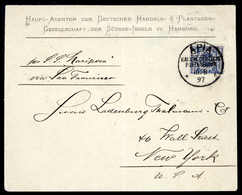 HAUPT-AGENTUR DER DEUTSCHEN HANDELS- & PLANTAGEN-
GESELLSCHAFT DER SÜDSEE-INSELN ZU HAMBURG.
APIA
KAISERL. DEUTSCHE
POSTAGENTUR
97
per S.S. Mariposa
via San Francisco
Ladenburg Thalmann & Co
46 Wall Street
New York
U.S.A.